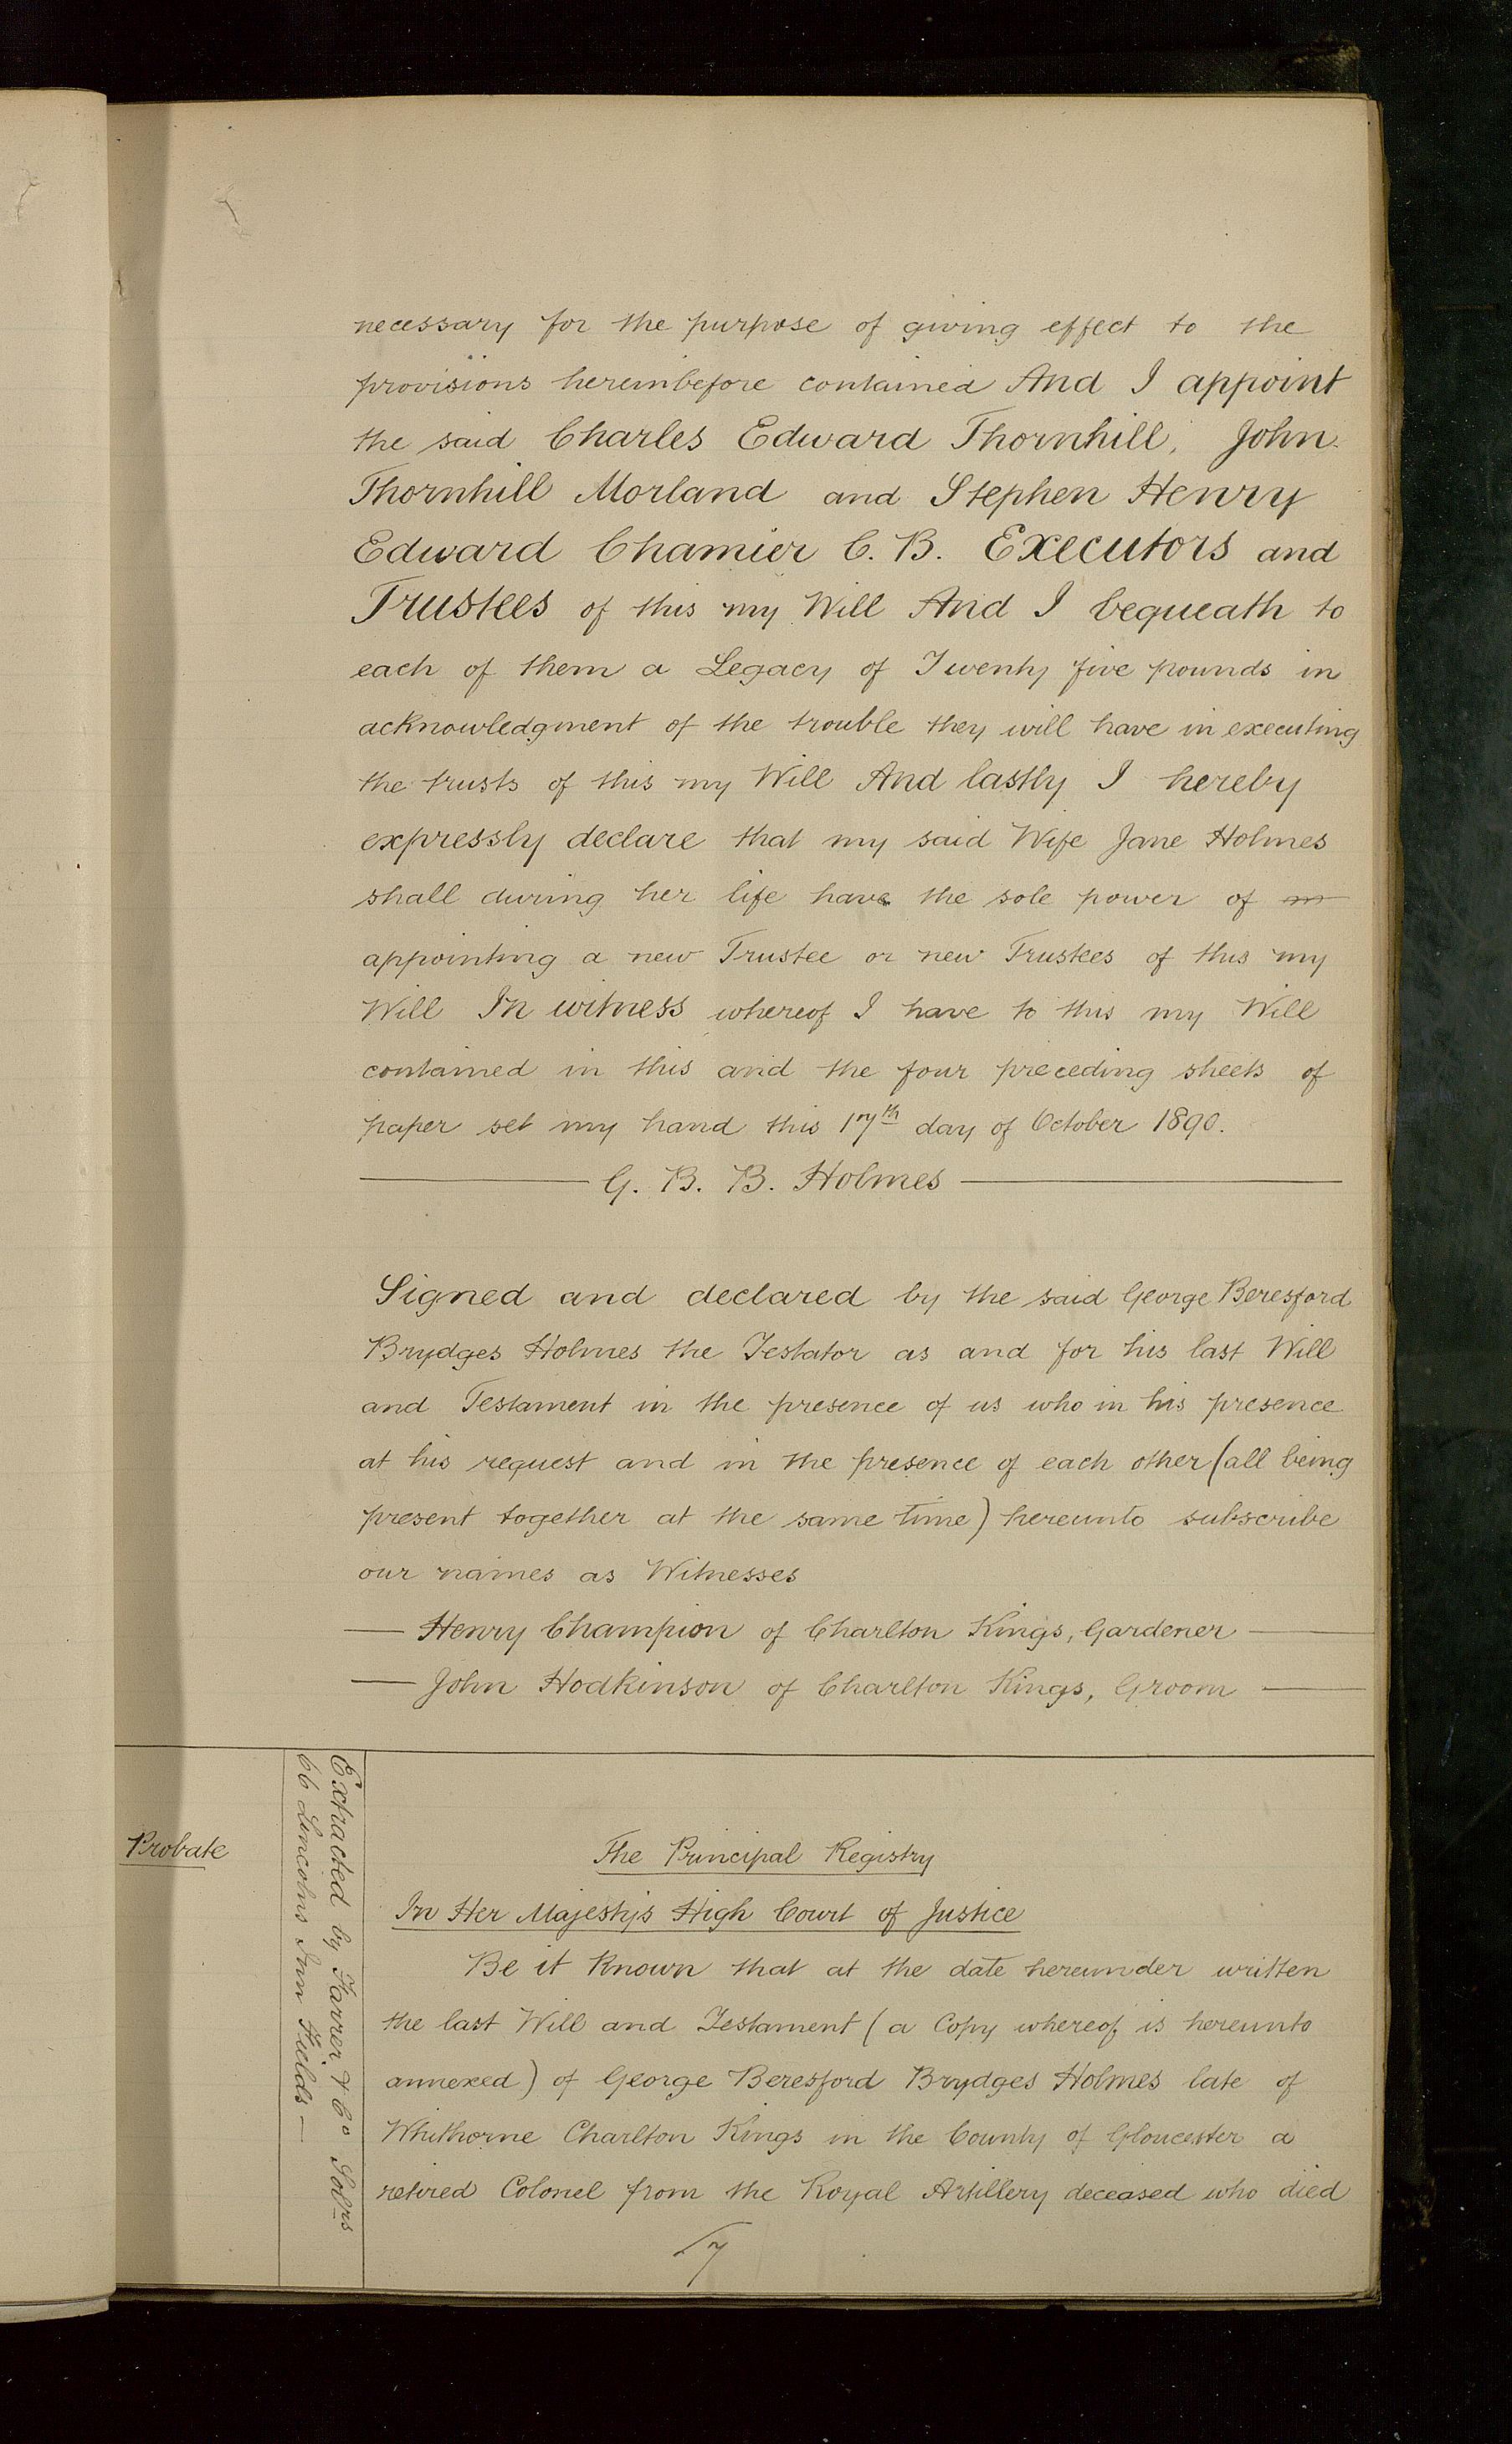 necessary for the purpose of giving effect to the
provisions hereinbefore contained And I appoint
the said Charles Edward Thornhill, John
Thornhill Morland and Stephen Henry
Edward Chamier C. B. Executors and
Trustees of this my Will And I bequeath to
each of them a Legacy of Twenty five pounds in
acknowledgment of the trouble they will have in executing
the trusts of this my Will And lastly I hereby
expressly declare that my said Wife Jane Holmes
shall during her life have the sole power of
appointing a new Trustee or new Trustees of this my
Will In witness whereof I have to this my Will
contained in this and the four preceding sheets of
paper set my hand this 17th day of October 1890.
G. B. B. Holmes
Signed and declared by the said George Beresford
Brydges Holmes the Testator as and for his last Will
and Testament in the presence of us who in his presence
at his request and in the presence of each other (all being
present together at the same time) hereunto subscribe
our names as Witnesses
— Henry Champion of Charlton Kings, Gardener —
— John Hodkinson of Charlton Kings, Groom —
Probate
Extracted by Farrer & Co Solrs
66 Lincolns Inn Fields —
The Principal Registry
In Her Majesty's High Court of Justice
Be it Known that at the date hereunder written
the last Will and Testament (a Copy whereof is hereunto
annexed) of George Beresford Brydges Holmes late of
Whithorne Charlton Kings in the County of Gloucester a
retired Colonel from the Royal Artillery deceased who died